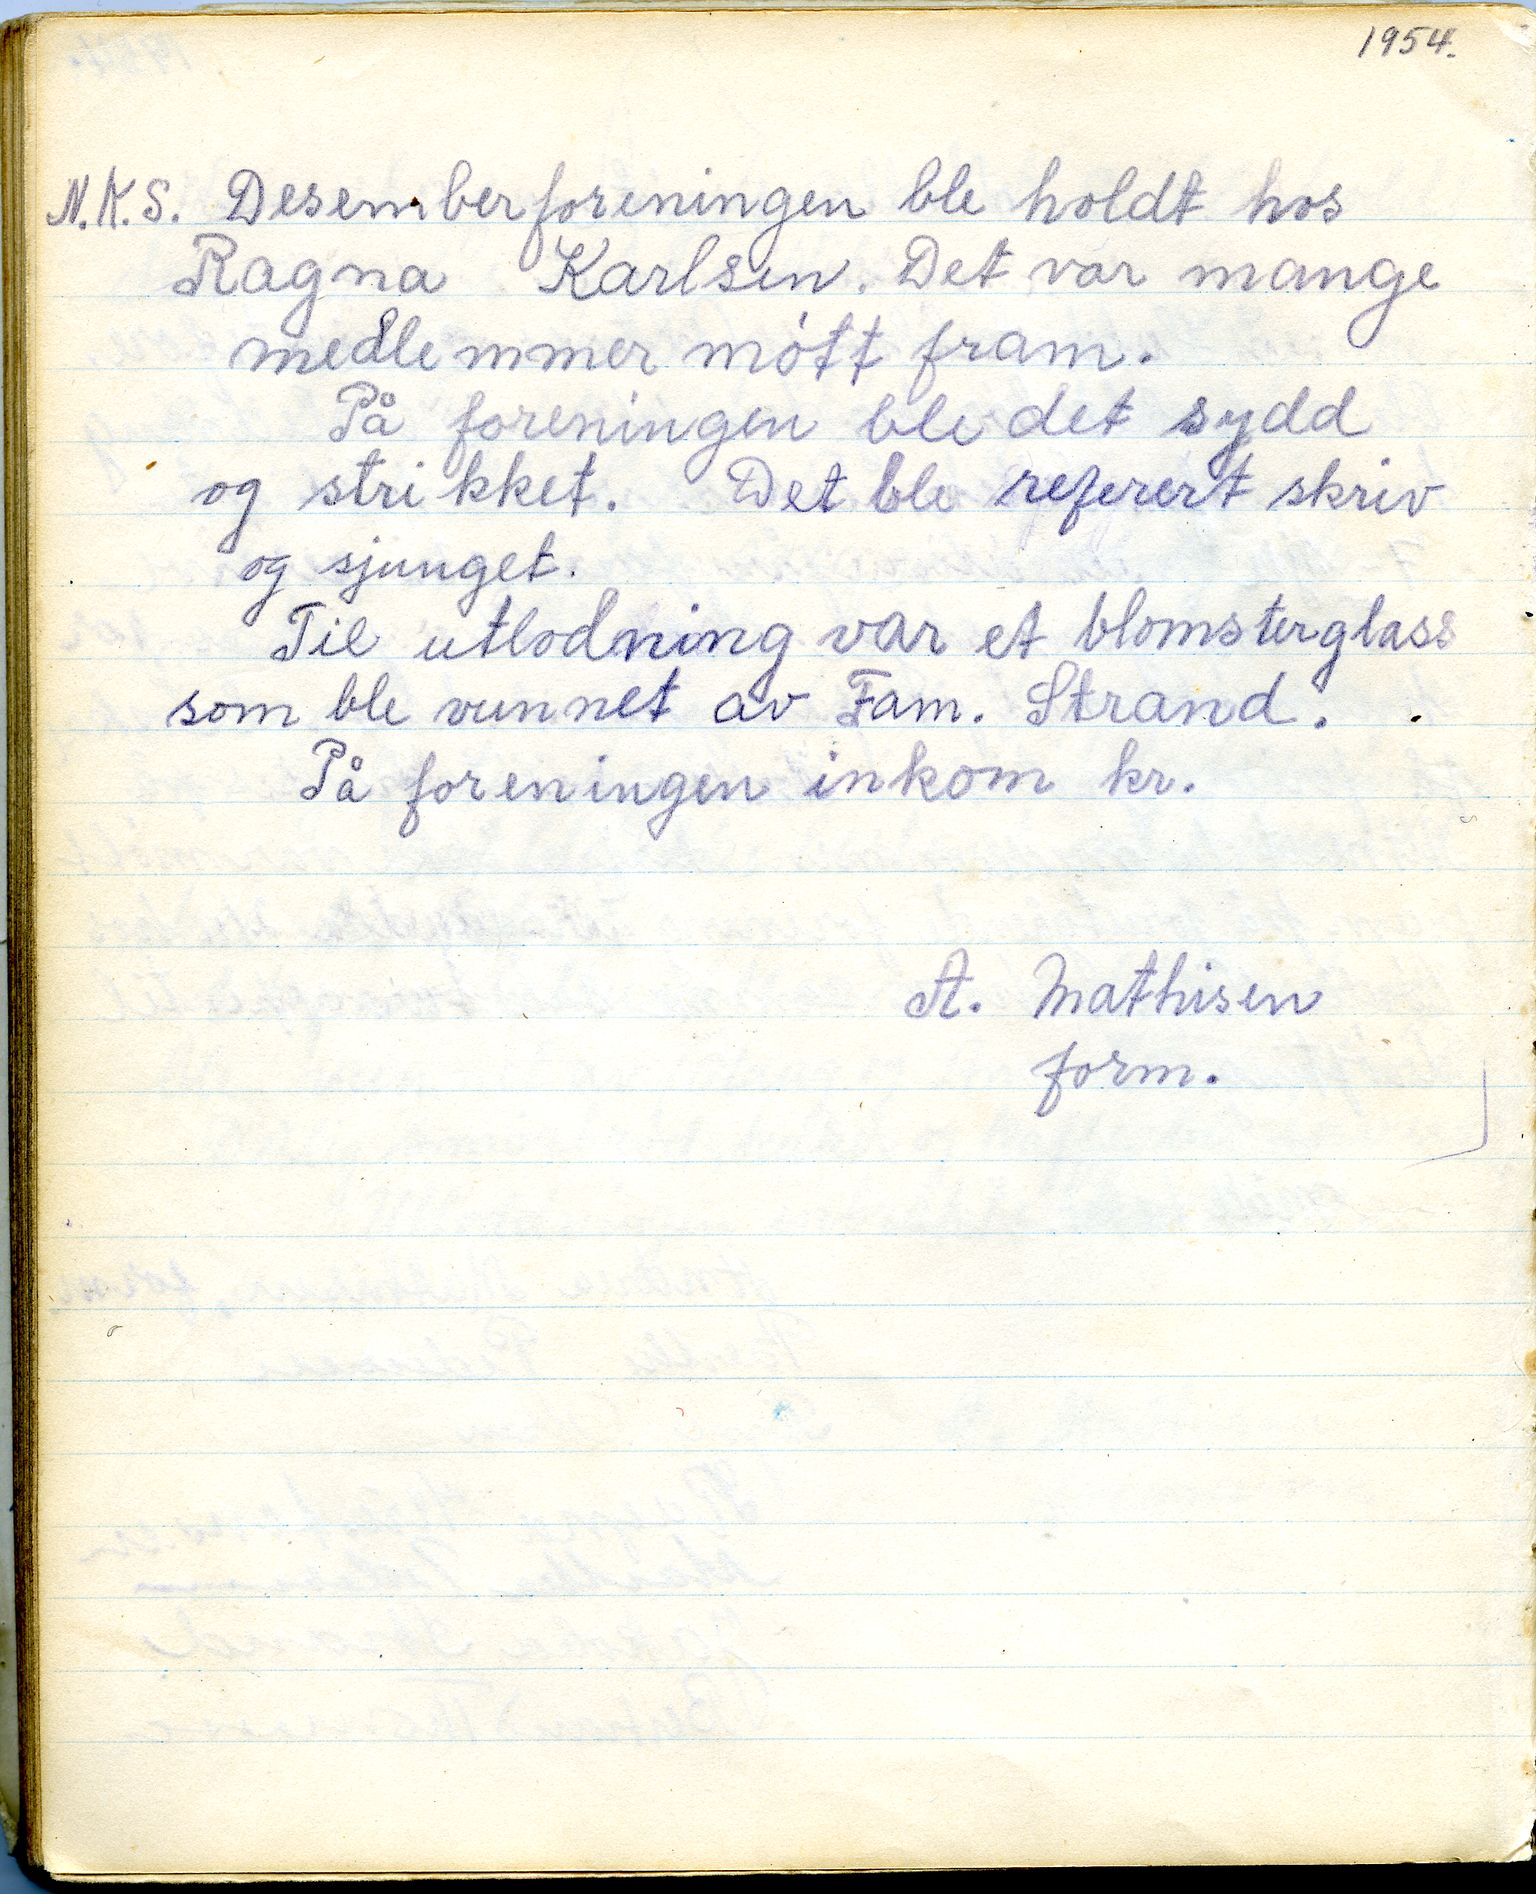 1954.
N.K.S. Desemberforeningen ble holdt hos
Ragna Karlsen. Det var mange
medlemmer møtt fram.
På foreningen ble det sydd
og strikket. Det ble referert skriv
og sjunget.
Til utlodning var et blomsterglass
som ble vunnet av Fam. Strand.
På foreningen inkom kr.
A. Mathisen
form.